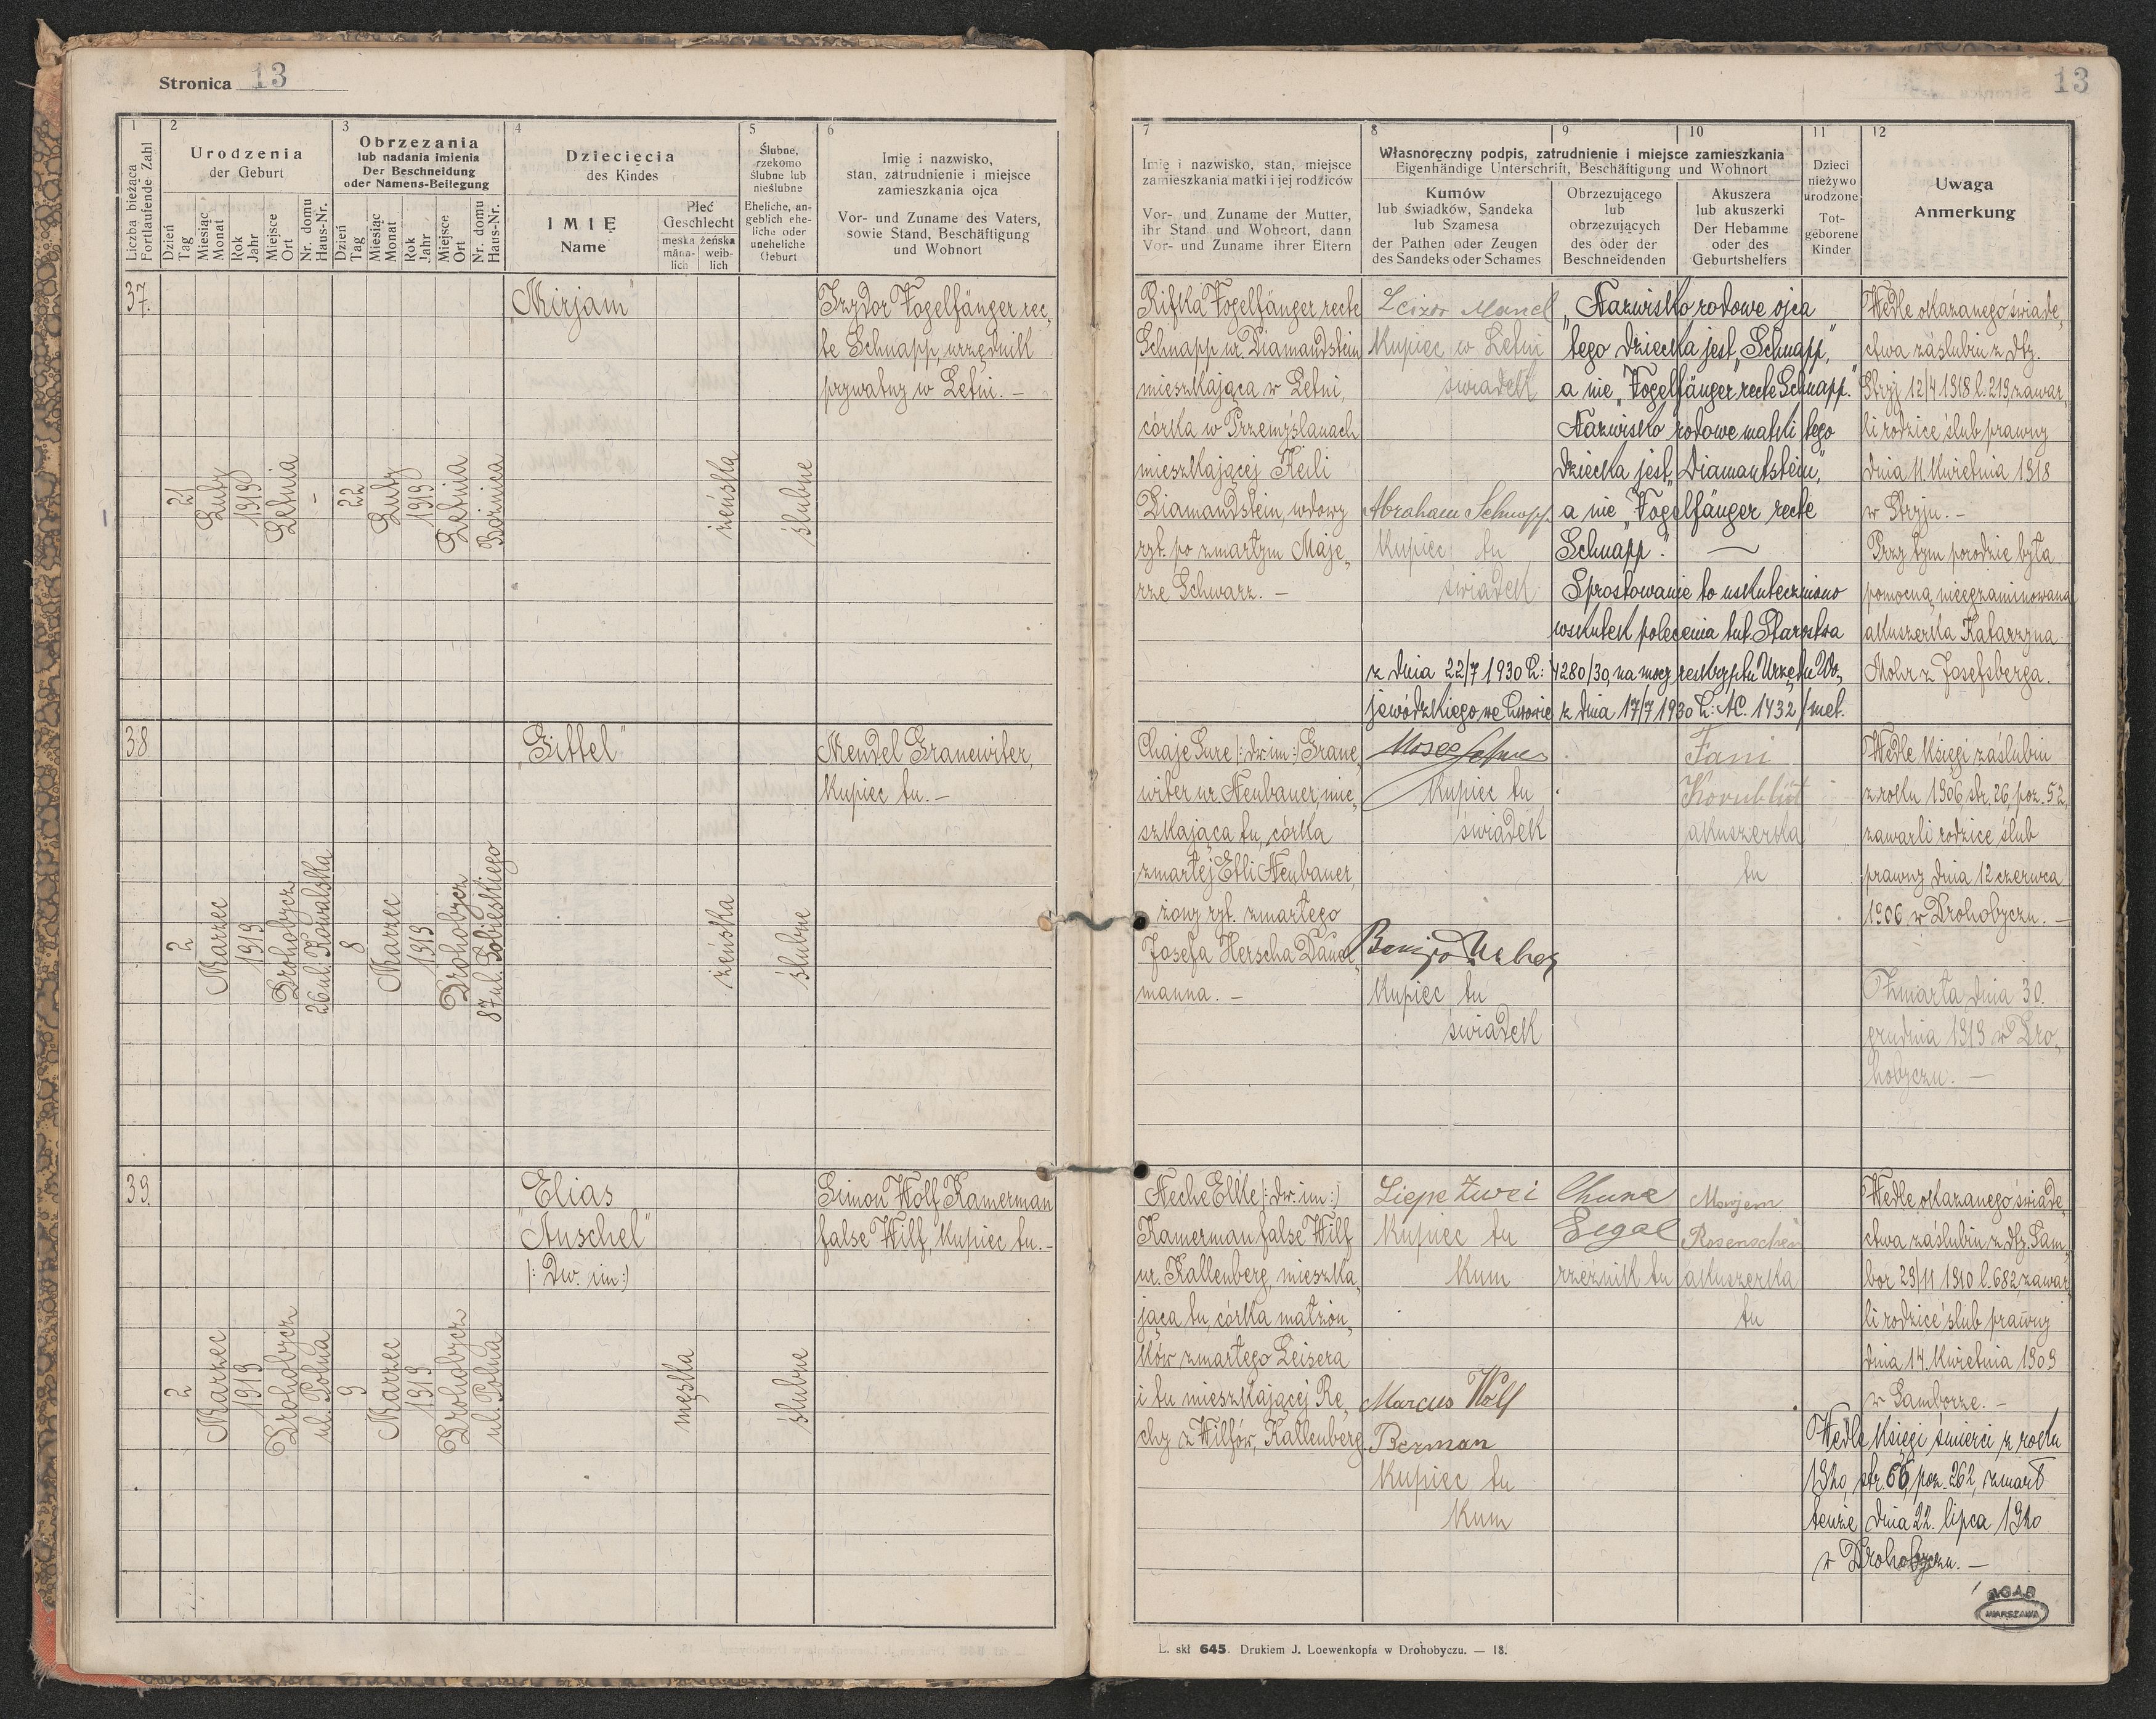 Stronica 13
13
1
Liczba bieżąca
Fortlaufende Zahl
2
Urodzenia
der Geburt
Dzień
Tag
Miesiąc
Monat
Rok
Jahr
Miejsce
Ort
Nr. domu
Haus-Nr.
3
Obrzezania
lub nadania imienia
Der Beschneidung
oder Namens-Beilegung
Dzień
Tag
Miesiąc
Monat
Rok
Jahr
Miejsce
Ort
Nr. domu
Haus-Nr.
4
Dziecięcia
des Kindes
IMIĘ
Name
Płeć
Geschlecht
męska
männ-
lich
żeńska
weib-
lich
5
Ślubne,
rzekomo
ślubne lub
nieślubne
Eheliche, an-
geblich ehe-
liche oder
uneheliche
Geburt
6
Imię i nazwisko,
stan, zatrudnienie i miejsce
zamieszkania ojca
Vor- und Zuname des Vaters,
sowie Stand, Beschäftigung
und Wohnort
7
Imię i nazwisko, stan, miejsce
zamieszkania matki i jej rodziców
Vor- und Zuname der Mutter,
ihr Stand und Wohnort, dann
Vor- und Zuname ihrer Eltern
8
9
10
Własnoręczny podpis, zatrudnienie i miejsce zamieszkania
Eigenhändige Unterschrift, Beschäftigung und Wohnort
Kumów
lub świadków, Sandeka
lub Szamesa
der Pathen oder Zeugen
des Sandeks oder Schames
Obrzezującego
lub
obrzezujących
des oder der
Beschneidenden
Akuszera
lub akuszerki
Der Hebamme
oder des
Geburtshelfers
11
Dzieci
nieżywo
urodzone
Tot-
geborene
Kinder
12
Uwaga
Anmerkung
37.
21
Luty
1919
Letnia
-
22
Luty
1919
Letnia
Bożnica
"Mirjam"
żeńska
ślubne
Izydor Vogelfänger rec„
te Schnapp, urzędnik
prywatny w Letni. –
Rifka Vogelfänger recte
Schnapp ur. Diamandstein
mieszkająca w Letni,
córka w Przemyślanach
mieszkającej Keili
Diamandstein, wdowy
ryt. po zmartym Maje„
rze Schwarz. –
Leizor Mandl
Kupiec w Letni
świadek
Abraham Schnapp
Kupiec tu
świadek
„Nazwisko rodowe ojca
tego dziecka jest „Schnapp",
a nie „Vogelfänger recte Schnapp."
Nazwisko rodowe matki tego
dziecka jest „Diamantstein",
a nie „Vogelfänger recte
Schnapp". —
Sprostowanie to uskuteczniono
wskutek polecenia tut. Starostwa
z dnia 22/7 1930 L: 4280/30, na mocy reskryptu Urzędu Wo„
jewódzkiego we Lwowie z dnia 17/7 1930 L: AC. 1432/met.
Wedle okazanego świade„
ctwa zaślubin z dtz.
Stryj 12/4 1918 l. 219 zawar„
li rodzice ślub prawny
dnia 11. Kwietnia 1918
w Stryju. –
Przy tym porodzie była
pomocną nieegzaminowana
akuszerka Katarzyna
Mohr z Josefsberga.
38.
2
Marzec
1919
Drohobycz
26 ul. Kowalska
8
Marzec
1919
Drohobycz
87 ul. Sobieskiego
"Gittel"
żeńska
ślubne
Mendel Granewiter,
Kupiec tu. –
Chaje Sure /: dw. im :/ Grane„
witer ur. Neubauer, mie„
szkająca tu, córka
zmartej Etli Neubauer,
żony ryt. zmartego
Josefa Herscha Dauer„
manna. –
Kupiec tu
świadek
Kupiec tu
świadek
Fani
Kornblüt
akuszerka
tu
Wedle Księgi zaślubin
z roku 1906 str. 26, poz. 52,
zawarli rodzice ślub
prawny dnia 12 czerwca
1906 w Drohobyczu. –
Zmarła dnia 30.
grudnia 1919 w Dro„
hobyczu. –
39.
2
Marzec
1919
Drohobycz
ul. Polna
9
Marzec
1919
Drohobycz
ul. Polna
Elias
"Anschel"
/: Dw. im :/
męska
ślubne
Simon Wolf Kamerman
false Wilf, Kupiec tu. –
Neche Elke /: dw. im :/
Kamerman false Wilf
ur. Kallenberg, mieszka„
jąca tu, córka małżon„
ków zmartego Leisera
i tu mieszkającej Re„
chy z Wilfów, Kallenberg.
Liepe Zwei
Kupiec tu
Kum
Marcus Wolf
Berman
Kupiec tu
Kum
Chune
Segal
rzeźnik tu
Marjem
Rosenschein
akuszerka
tu
Wedle okazanego świade„
ctwa zaślubin z dtz. Sam„
bor 29/11 1910 l. 682, zawar„
li rodzice ślub prawny
dnia 14. Kwietnia 1909
w Samborze. –
Wedle Księgi śmierci z roku
1920, str. 66, poz. 262, zmarł
tenże dnia 22. lipca 1920
w Drohobyczu. –
AGAD
WARSZAWA
L. skł 645. Drukiem J. Loewenkopfa w Drohobyczu. — 18.